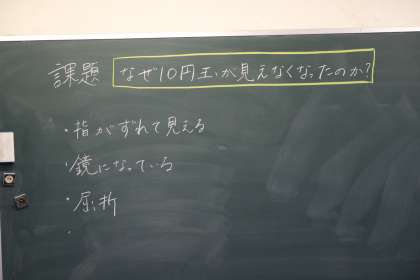 課題 なぜ10円玉が見えなくなったのか?
・指がずれて見える
・鏡になっている
・屈折
・